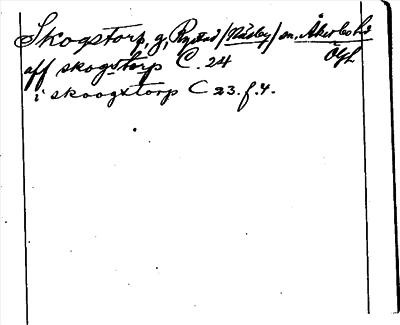 Skogstorp, g, Rystad / Näsby / sn, Åkerbo hd
Ögl.
aff skogstorp C. 24
i skoogxtorp C 23. f. 4.